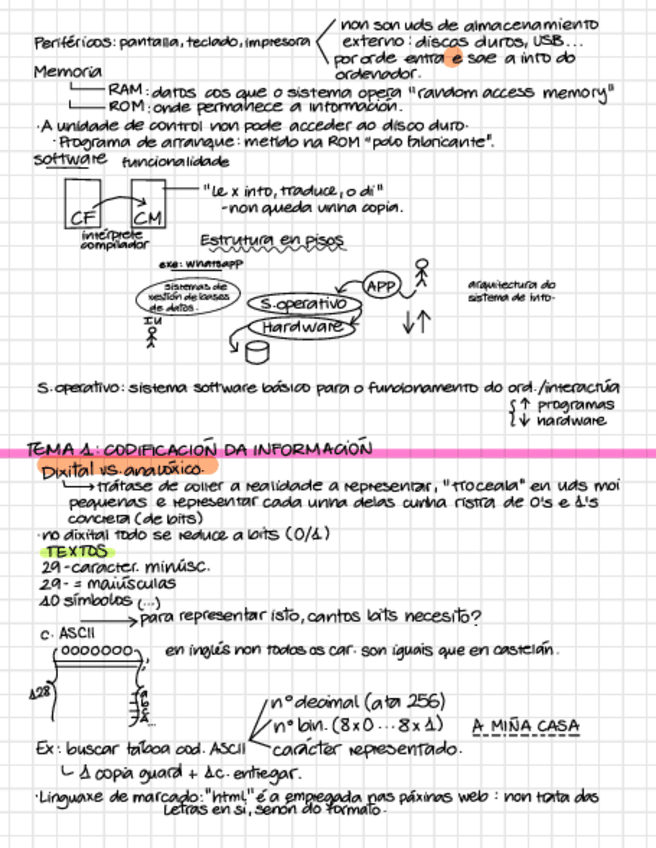 non son uds de almacenamento
Periféricos: pantalla, teclado, impresora
externo: discos duros, USB...
por orde entra e sae a info do
ordenador.
Memoria
RAM: datos cos que o sistema opera "random access memory"
ROM: onde permanece a información.
·A unidade de control non pode acceder ao disco duro.
·Programa de arranque: metido na ROM "polo fabricante".
software funcionalidade
"le x into, traduce, o di"
CF CM
-non queda unha copia.
intérprete
compilador
Estrutura en pisos
exe: Whatsapp
sistemas de
xestión de bases
de datos.
APP
S.operativo
Hardware
IU
arquitectura do
sistema de info.
S.operativo: sistema software básico para o funcionamento do ord./interactúa
↑ programas
↓ hardware
TEMA 1: CODIFICACIÓN DA INFORMACIÓN
Dixital vs. analóxico.
trátase de coller a realidade a representar, "troceala" en uds moi
pequenas e representar cada unha delas cunha ristra de 0's e 1's
concreta (de bits)
·no dixital todo se reduce a bits (0/1)
TEXTOS
29-caracter. minúsc.
29- = maiúsculas
10 símbolos (...)
para representar isto, cantos bits necesito?
c. ASCII
0000000
en inglés non todos os car. son iguais que en castelán.
128
a
b
c
nº decimal (ata 256)
nº bin. (8x0...8x1) A MIÑA CASA
Ex: buscar táboa cod. ASCII
carácter representado.
1 copia guard + 1c. entregar.
·Linguaxe de marcado: "html" é a empregada nas páxinas web: non trata das
Letras en si, senón do formato.